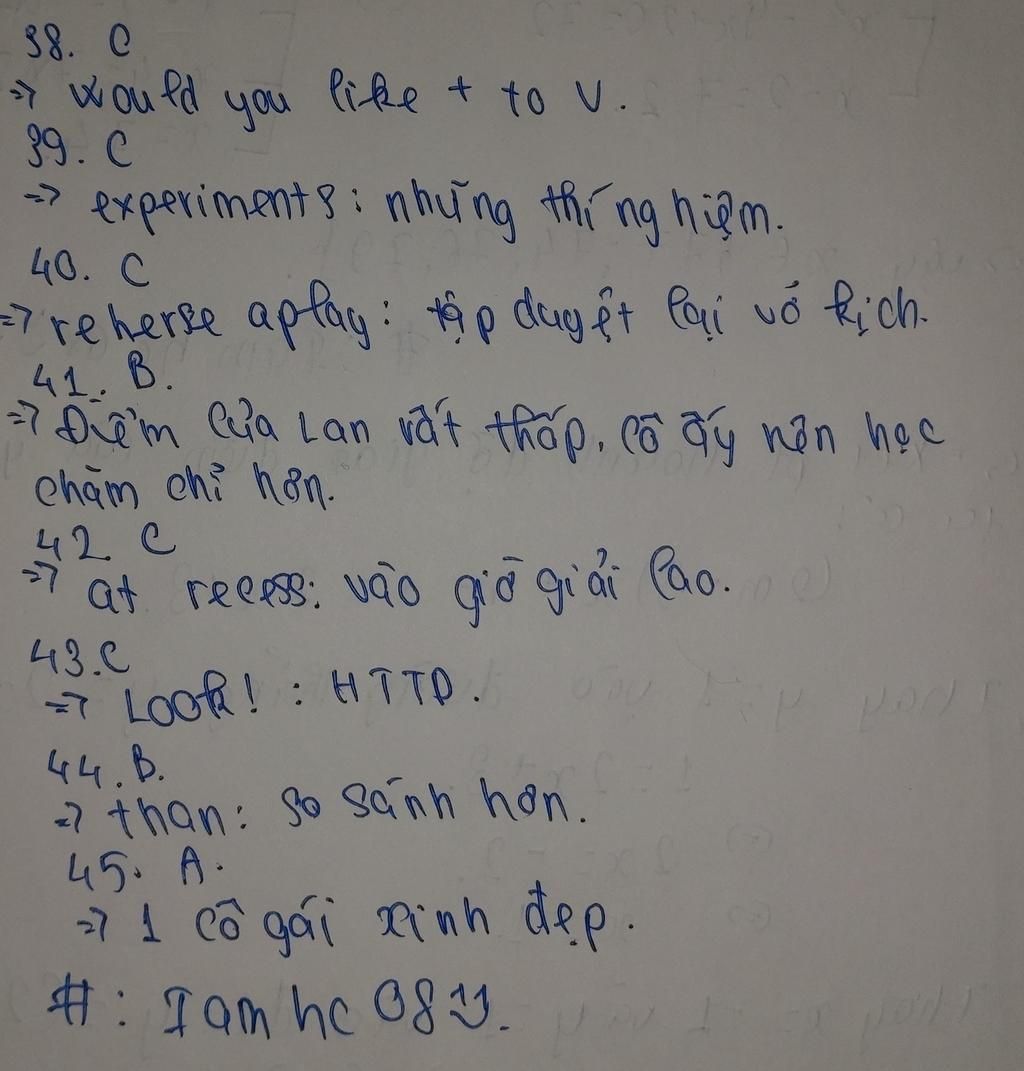 38. C
=> Would you like + to V.
39. C
=> experiments: những thí nghiệm.
40. C
=> reherse a play: tập duyệt lại vở kịch.
41. B.
=> Điểm của Lan rất thấp. Cô ấy nên học
chăm chỉ hơn.
42. C
=> at recess: vào giờ giải lao.
43. C
=> Look! : HTTD.
44. B.
=> than: so sánh hơn.
45. A.
=> 1 cô gái xinh đẹp.
#: I am hc 08